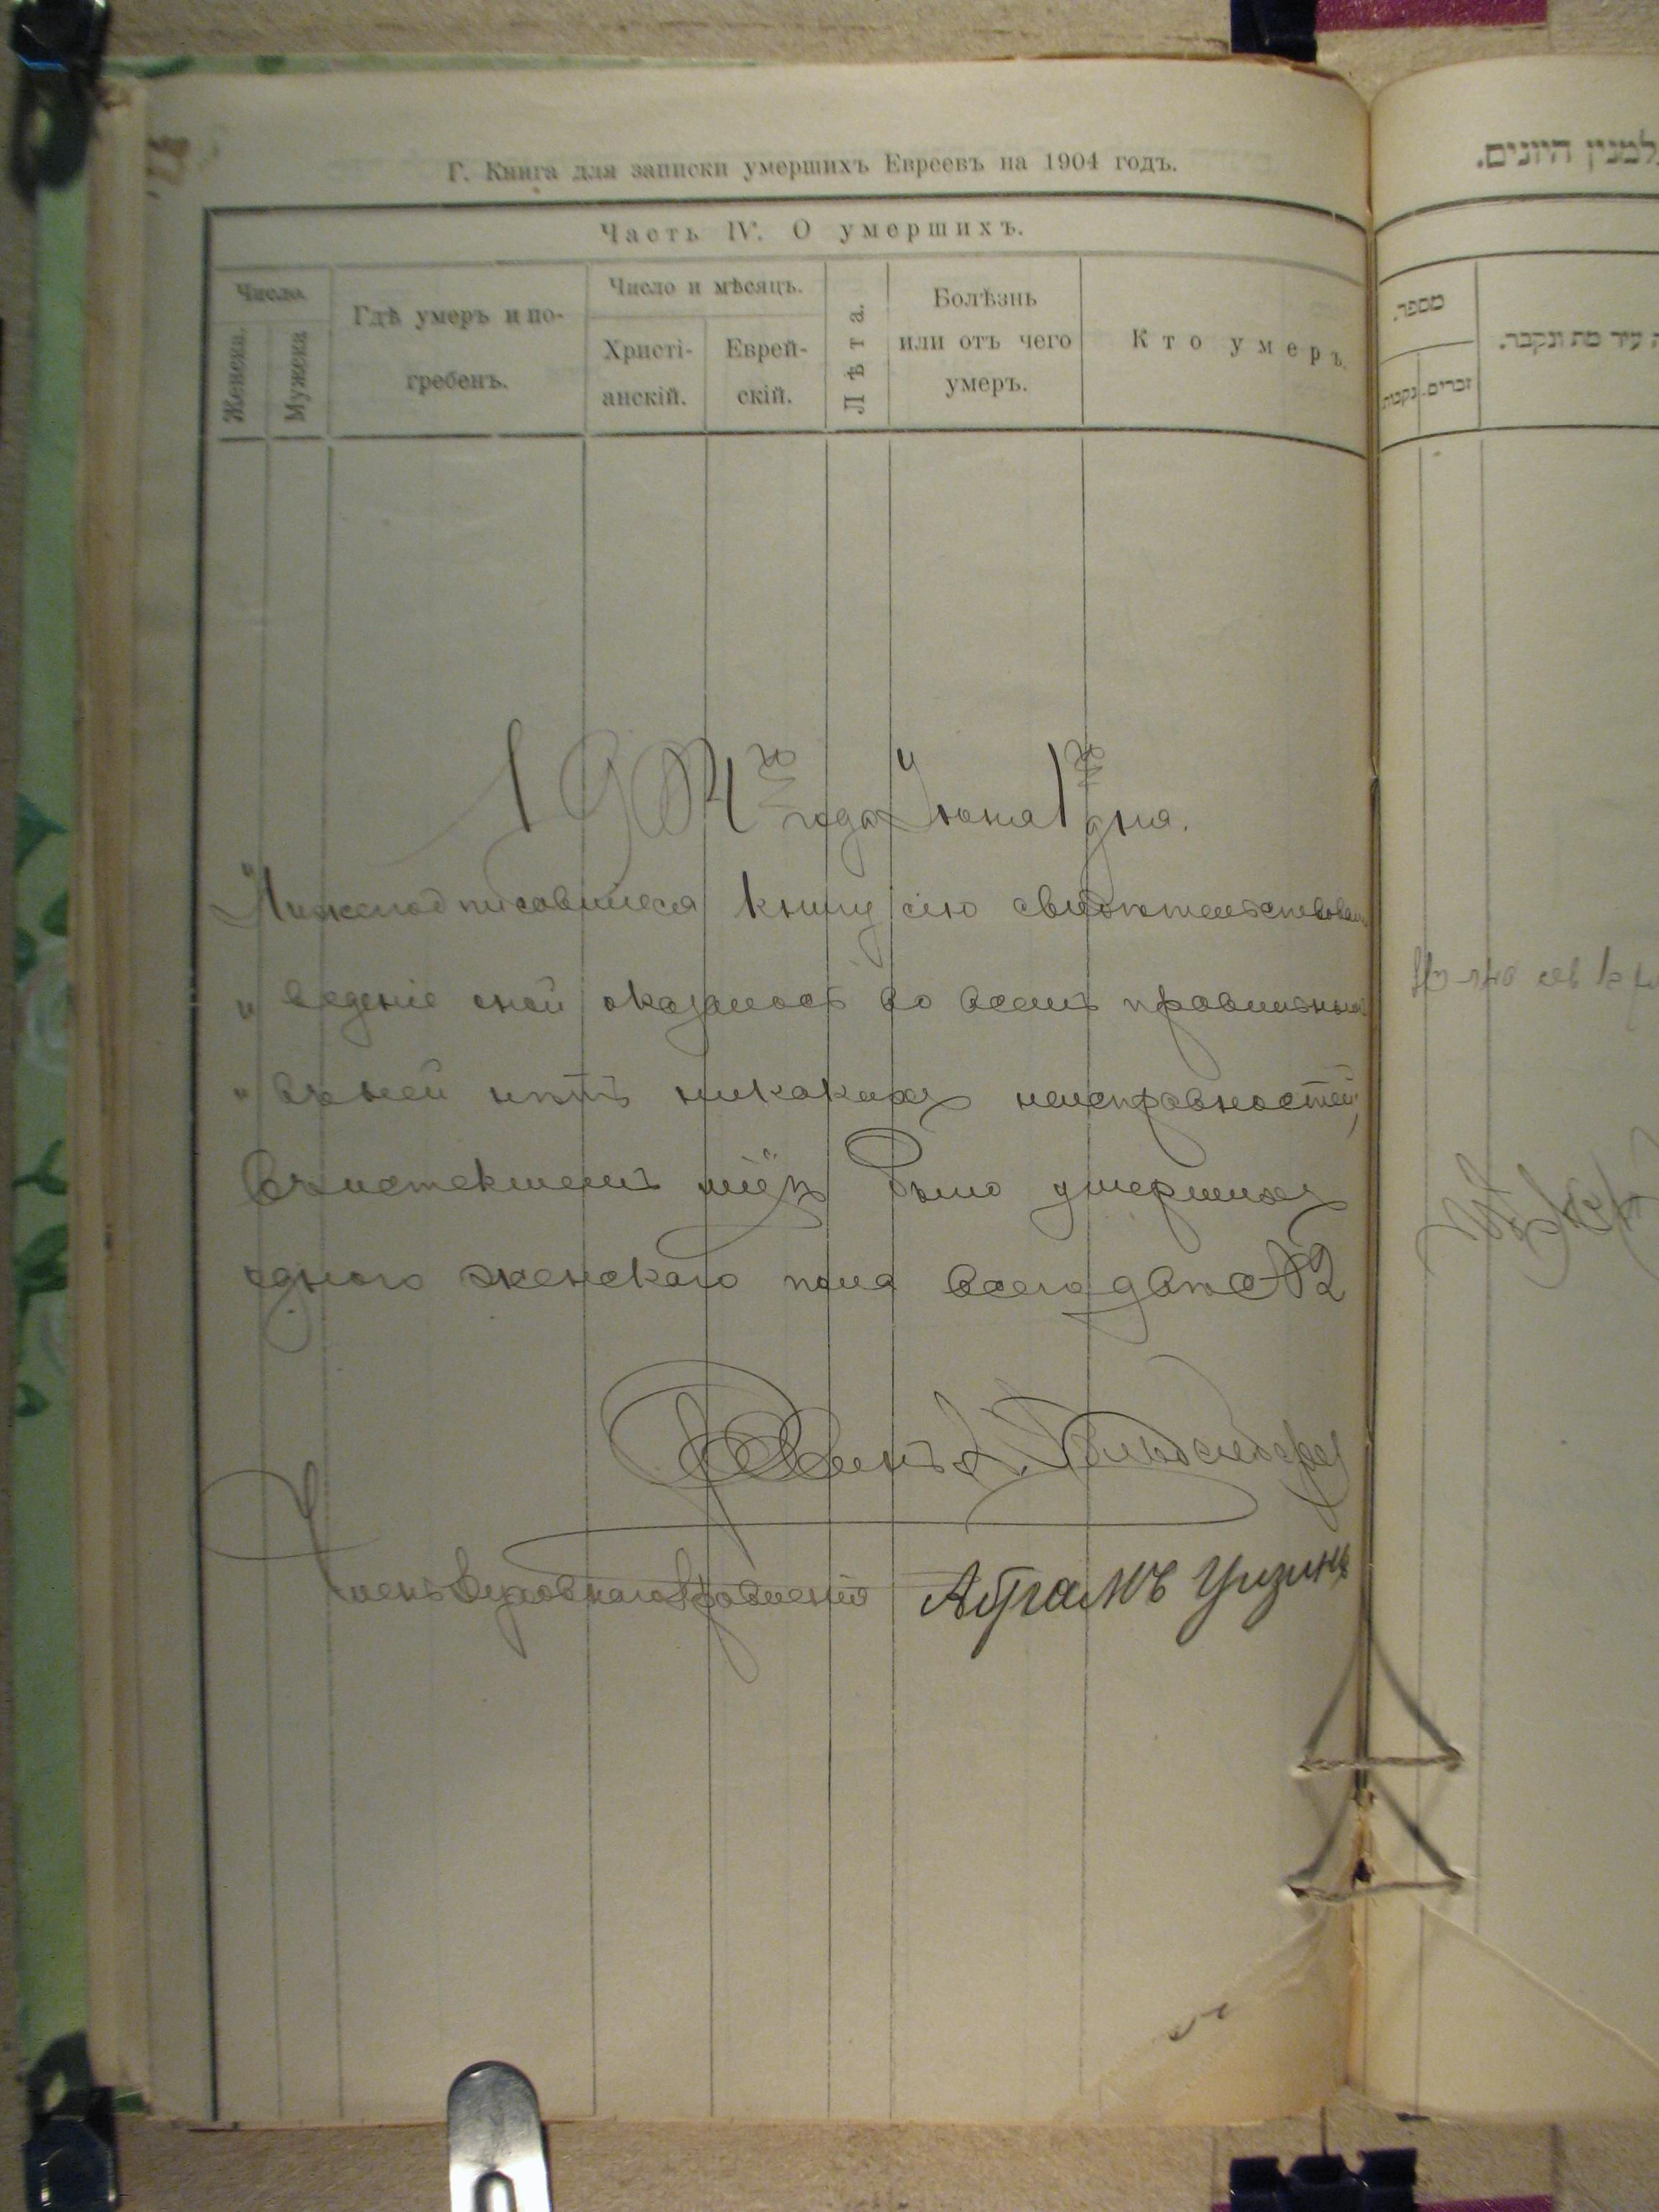 Г. Книга для записки умершихъ Евреевъ на 1904 годъ.
Часть IV. О умершихъ.
Число.
Женска.
Мужеска
Гдѣ умеръ и по-
гребенъ.
Число и мѣсяцъ.
Христі-
анскій.
Еврей-
скій.
Лѣта.
Болѣзнь
или отъ чего
умеръ.
Кто умеръ.
1904го года Іюня 1го дня.
Нижеподписавшіеся книгу сію свидѣтельствовали
веденіе оной оказалось во всемъ правильнымъ
въ ней нѣтъ никакихъ неисправностей,
въ истекшемъ мцѣ было умершихъ
одного женскаго пола всего двѣ 2
Членъ Духовнаго Правленія Абрамъ
למנין היונים.
מספר.
זכרים.
נקבות
עיר מת ונקבר.